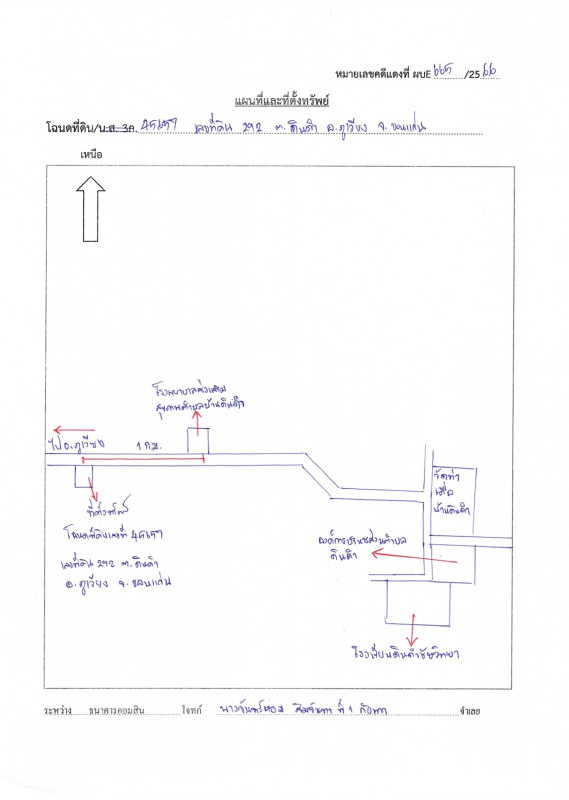 หมายเลขคดีแดงที่ ผบE 665 /2566
แผนที่และที่ตั้งทรัพย์
โฉนดที่ดิน/น.ส. 3ก. 45657 เลขที่ดิน 292 ต.ดินดำ อ.ภูเวียง จ.ขอนแก่น
เหนือ
โรงพยาบาลส่งเสริม
สุขภาพตำบลบ้านดินดำ
ไป อ.ภูเวียง 1 กม.
วัดท่า
เดื่อ
บ้านดินดำ
ที่ตั้งทรัพย์
โฉนดที่ดินเลขที่ 45657
เลขที่ดิน 292 ต.ดินดำ
อ.ภูเวียง จ.ขอนแก่น
องค์การบริหารส่วนตำบล
ดินดำ
โรงเรียนดินดำชัยวิทยา
ระหว่าง ธนาคารออมสิน โจทก์ ที่ 1 กับพวก จำเลย